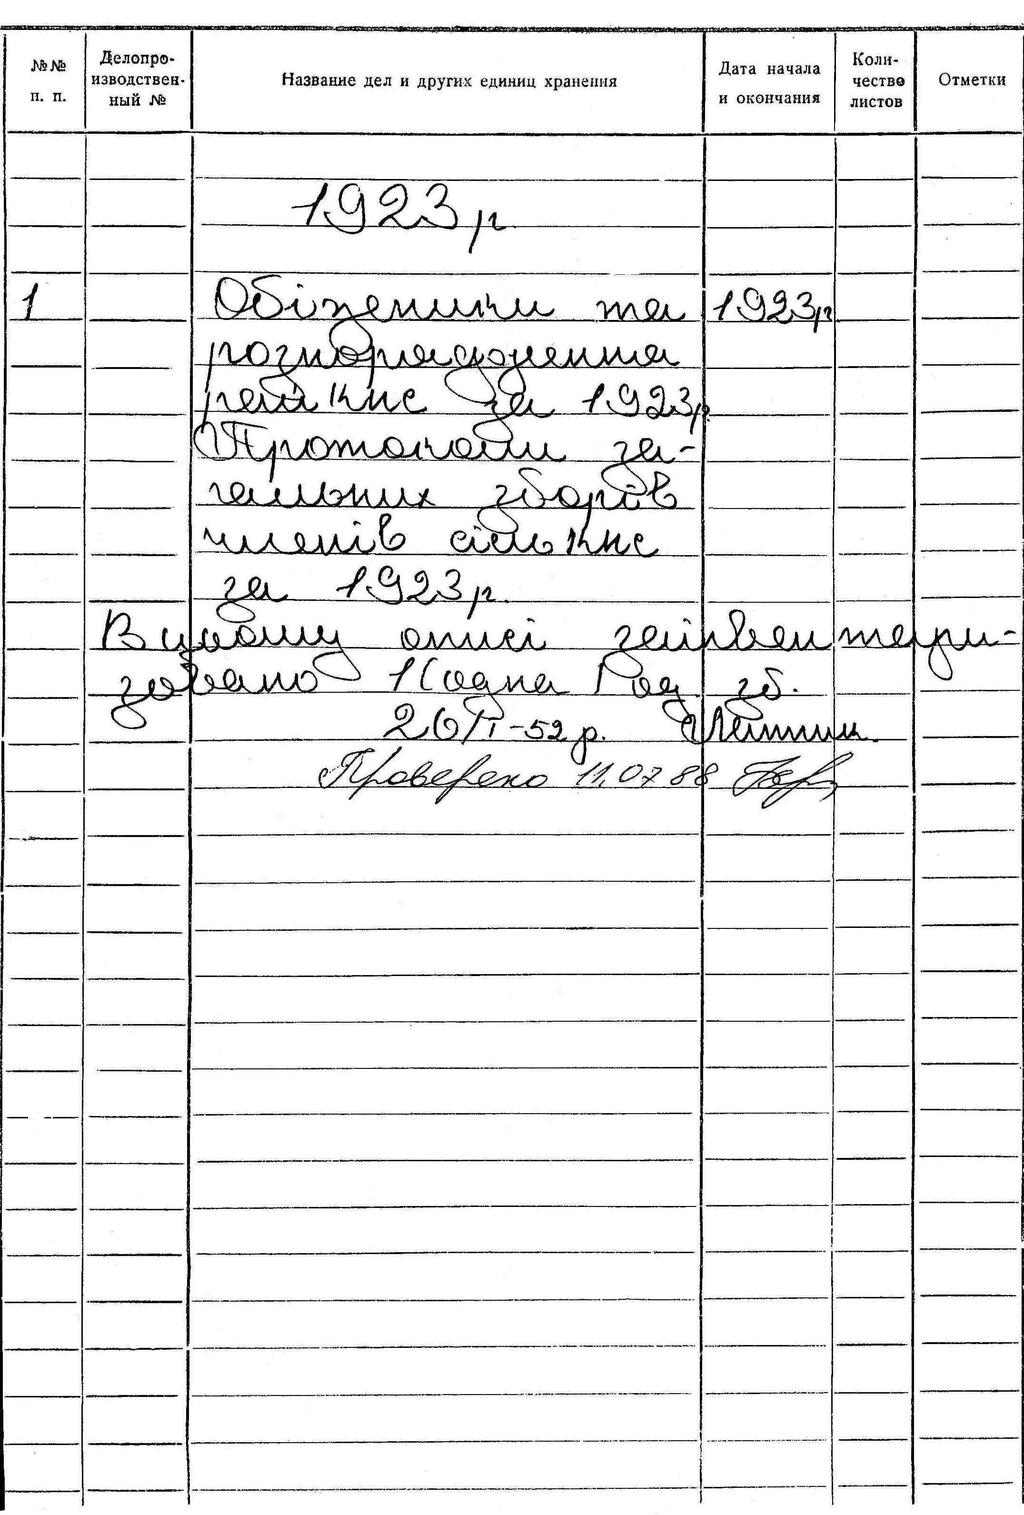 №№ п. п.
Делопро-
изводствен-
ный №
Название дел и других единиц хранения
Дата начала
и окончания
Коли-
чество
листов
Отметки
1923 р.
1 Обіжники та 1923 р.
розпорядження
рай КНС за 1923 р.
Протоколи за-
гальних зборів
членів сіль КНС
за 1923 р.
В цьому описі заінвентари-
зовано 1 (одна) од. зб.
26/І-52 р.
Проверено 11.07.88